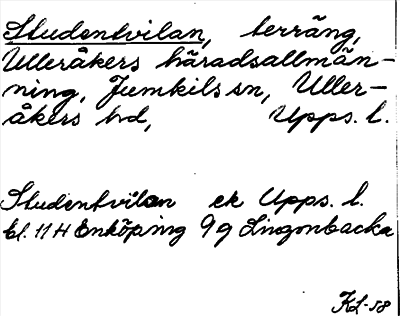 Studentvilan, terräng,
Ulleråkers häradsallmän-
ning, Jumkils sn, Uller-
åkers hd, Upps. l.
Studentvilan ek Upps. l.
bl. 11H Enköping 9g Lingonbacka
KL-58